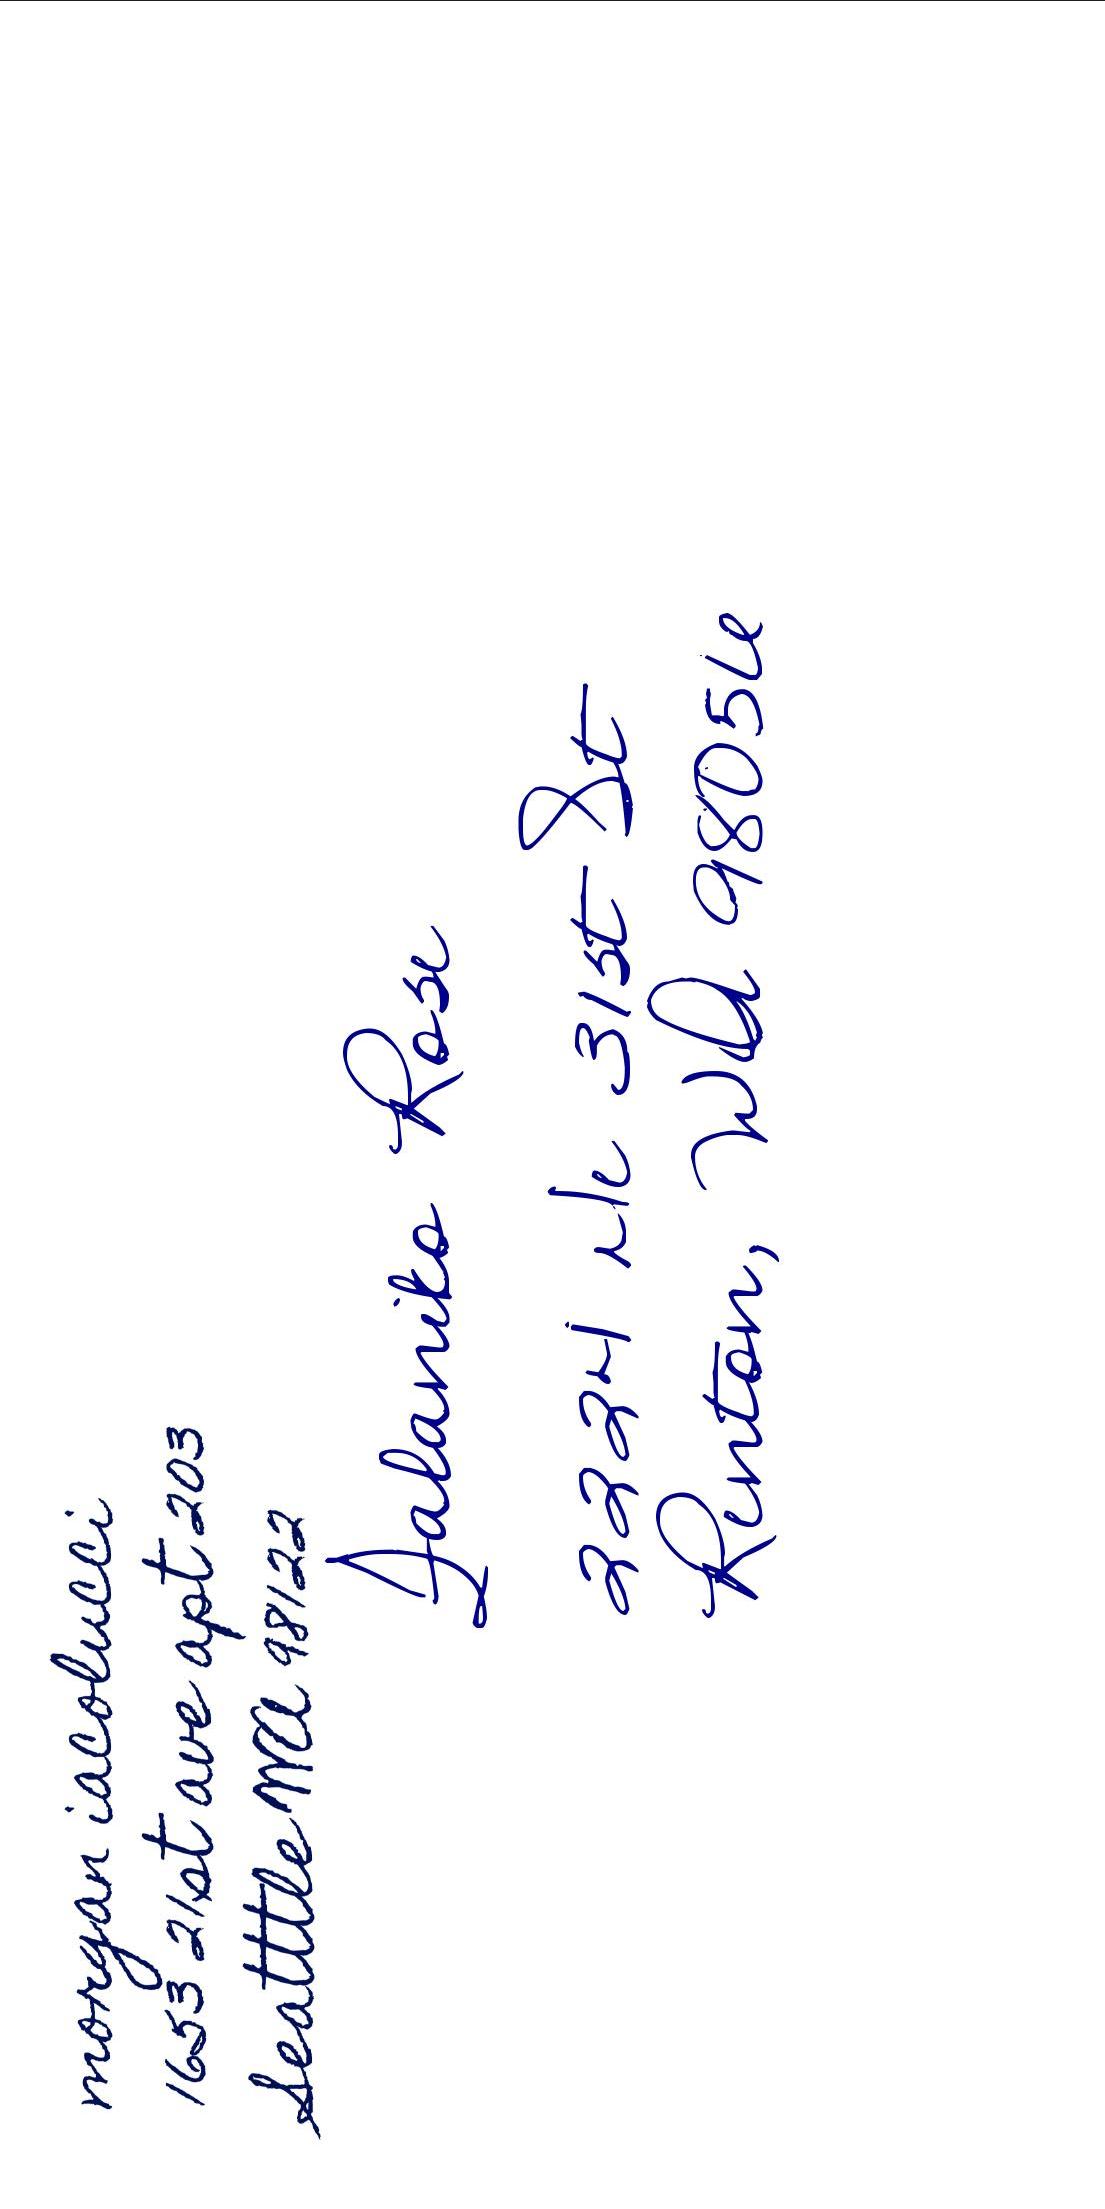 morgan iacolucci
1653 21st ave apt 203
Seatttle WA 98122
Jalanika Rose
2224 Ne 31st St
Renton, WA 98056